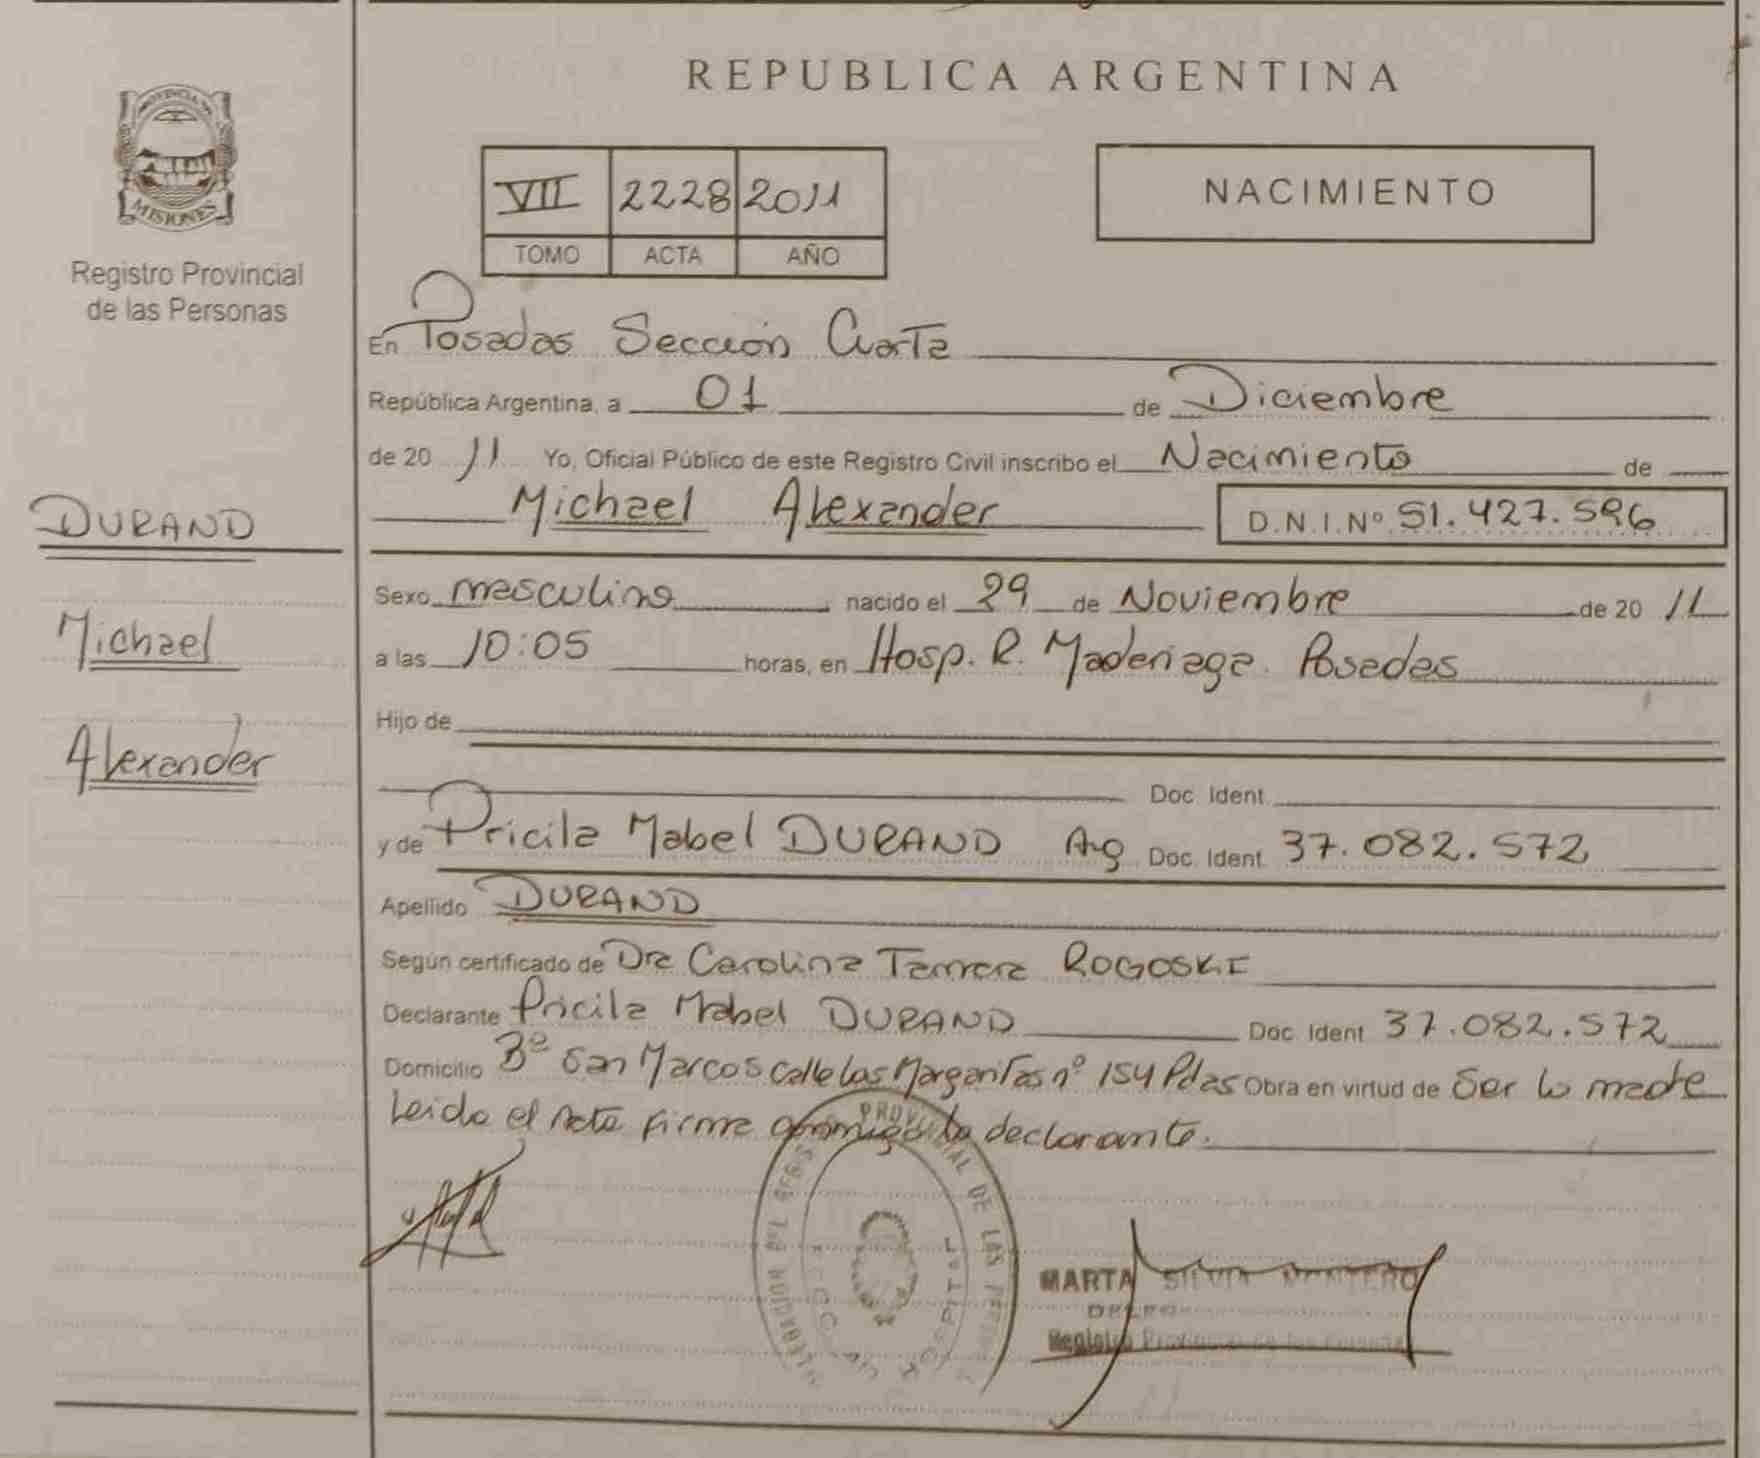 REPUBLICA ARGENTINA
PROVINCIA DE
MISIONES
Registro Provincial
de las Personas
VII 2228 2011
TOMO ACTA AÑO
NACIMIENTO
En Posadas Sección Cuarta
República Argentina, a 01 de Diciembre
de 20 11 Yo, Oficial Público de este Registro Civil inscribo el Nacimiento de
Michael Alexander D.N.I.Nº 51.427.596
DURAND
Michael
Alexander
Sexo masculino nacido el 29 de Noviembre de 20 11
a las 10:05 horas, en Hosp. R. Madariaga. Posadas
Hijo de
Doc. Ident.
y de Pricila Mabel DURAND Arg Doc. Ident. 37.082.572
Apellido DURAND
Según certificado de Dra Carolina ROGOSKI
Declarante Pricila Mabel DURAND Doc. Ident 37.082.572
Domicilio Bº San Marcos calle Las Margaritas nº 154 Pdas Obra en virtud de Ser la madre
Leida el Acta firma conmigo la declarante.
PROVINCIAL DE LAS
MARTA SILVIA MONTERO
Registro Provincial de las Personas